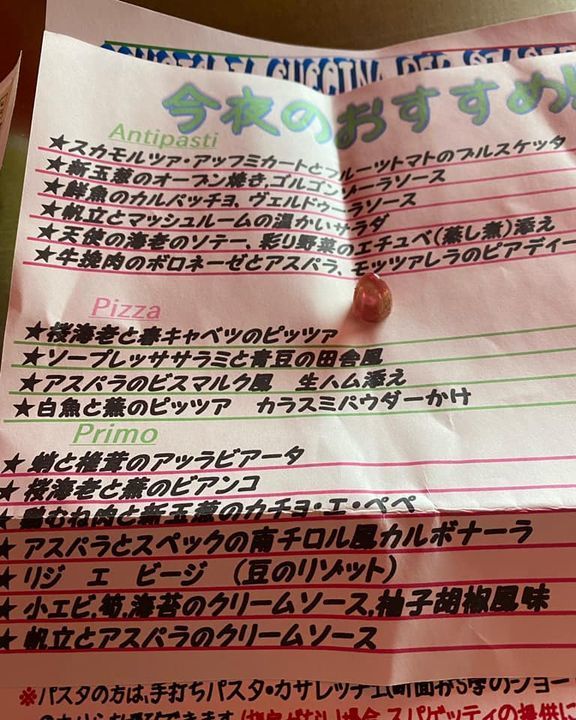 今夜のおすすめ!!
Antipasti
★スカモルツァ・アッフミカートとフルーツトマトのブルスケッタ
★新玉葱のオーブン焼き,ゴルゴンゾーラソース
★鮮魚のカルパッチョ、ヴェルドゥーラソース
★帆立とマッシュルームの温かいサラダ
★天使の海老のソテー、彩り野菜のエチュベ(蒸し煮)添え
★牛挽肉のボロネーゼとアスパラ、モッツァレラのピアディー
Pizza
★桜海老と春キャベツのピッツァ
★ソープレッササラミと青豆の田舎風
★アスパラのビスマルク風 生ハム添え
★白魚と蕪のピッツア カラスミパウダーかけ
Primo
★蛸と椎茸のアッラビアータ
★桜海老と蕪のビアンコ
★鶏むね肉と新玉葱のカチョ・エ・ペペ
★アスパラとスペックの南チロル風カルボナーラ
★リジ エ ビージ (豆のリゾット)
★小エビ,筍,海苔のクリームソース,柚子胡椒風味
★帆立とアスパラのクリームソース
※パスタの方は,手打ちパスタ・カサレッチェ(断面がS字のショー